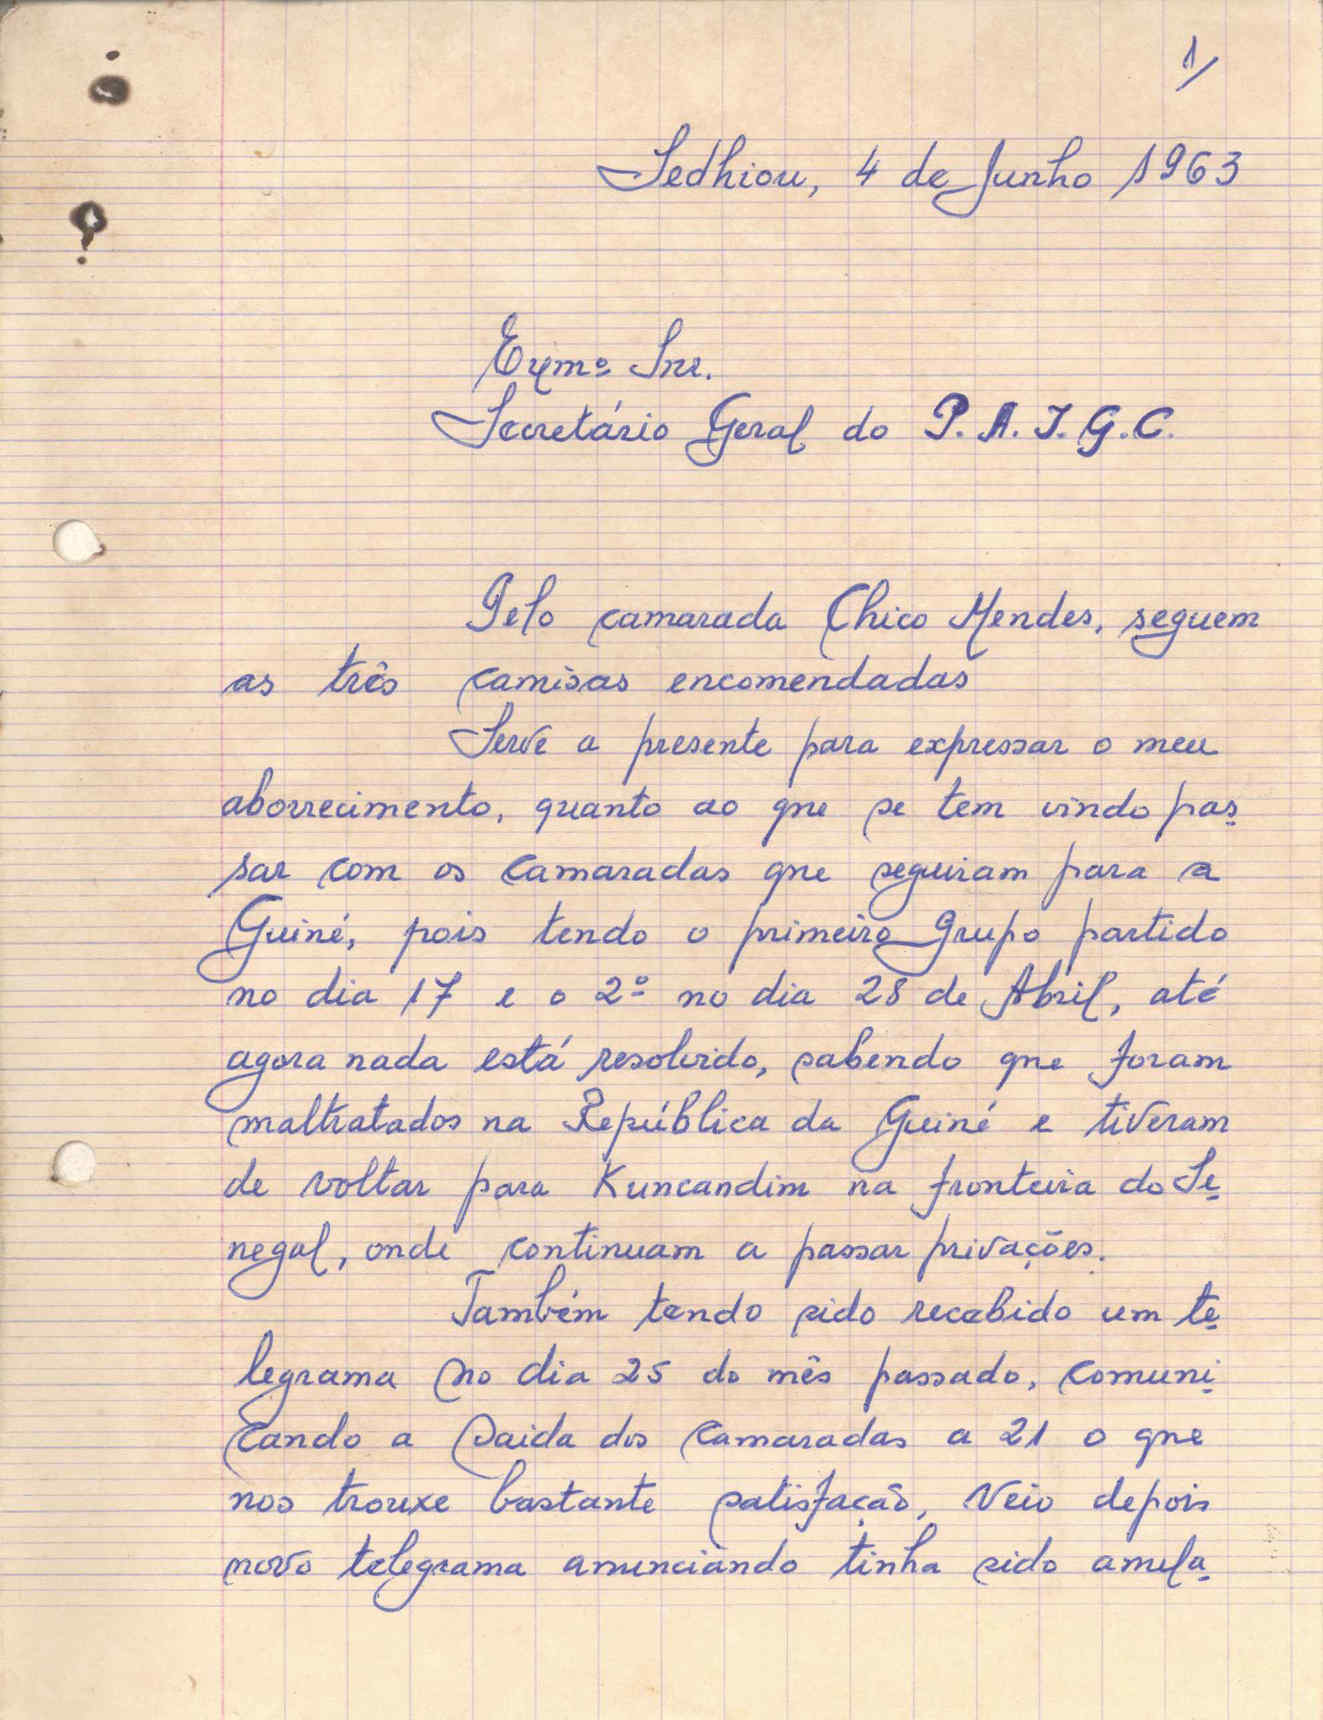 1/
Sedhiou, 4 de Junho 1963
Exmº Snr.
Secretário Geral do P.A.I.G.C.
Pelo camarada Chico Mendes, seguem
as três camisas encomendadas
Serve a presente para expressar o meu
aborrecimento, quanto ao que se tem vindo pas-
sar com os camaradas que seguiram para a
Guiné, pois tendo o primeiro grupo partido
no dia 17 e o 2º no dia 28 de Abril, até
agora nada está resolvido, sabendo que foram
maltratados na República da Guiné e tiveram
de voltar para Kuncandim na fronteira do Se-
negal, onde continuam a passar privações.
Também tendo sido recebido um te-
legrama no dia 25 do mês passado, comuni-
cando a saida dos camaradas a 21 o que
nos trouxe bastante satisfação, veio depois
novo telegrama anunciando tinha sido anula-